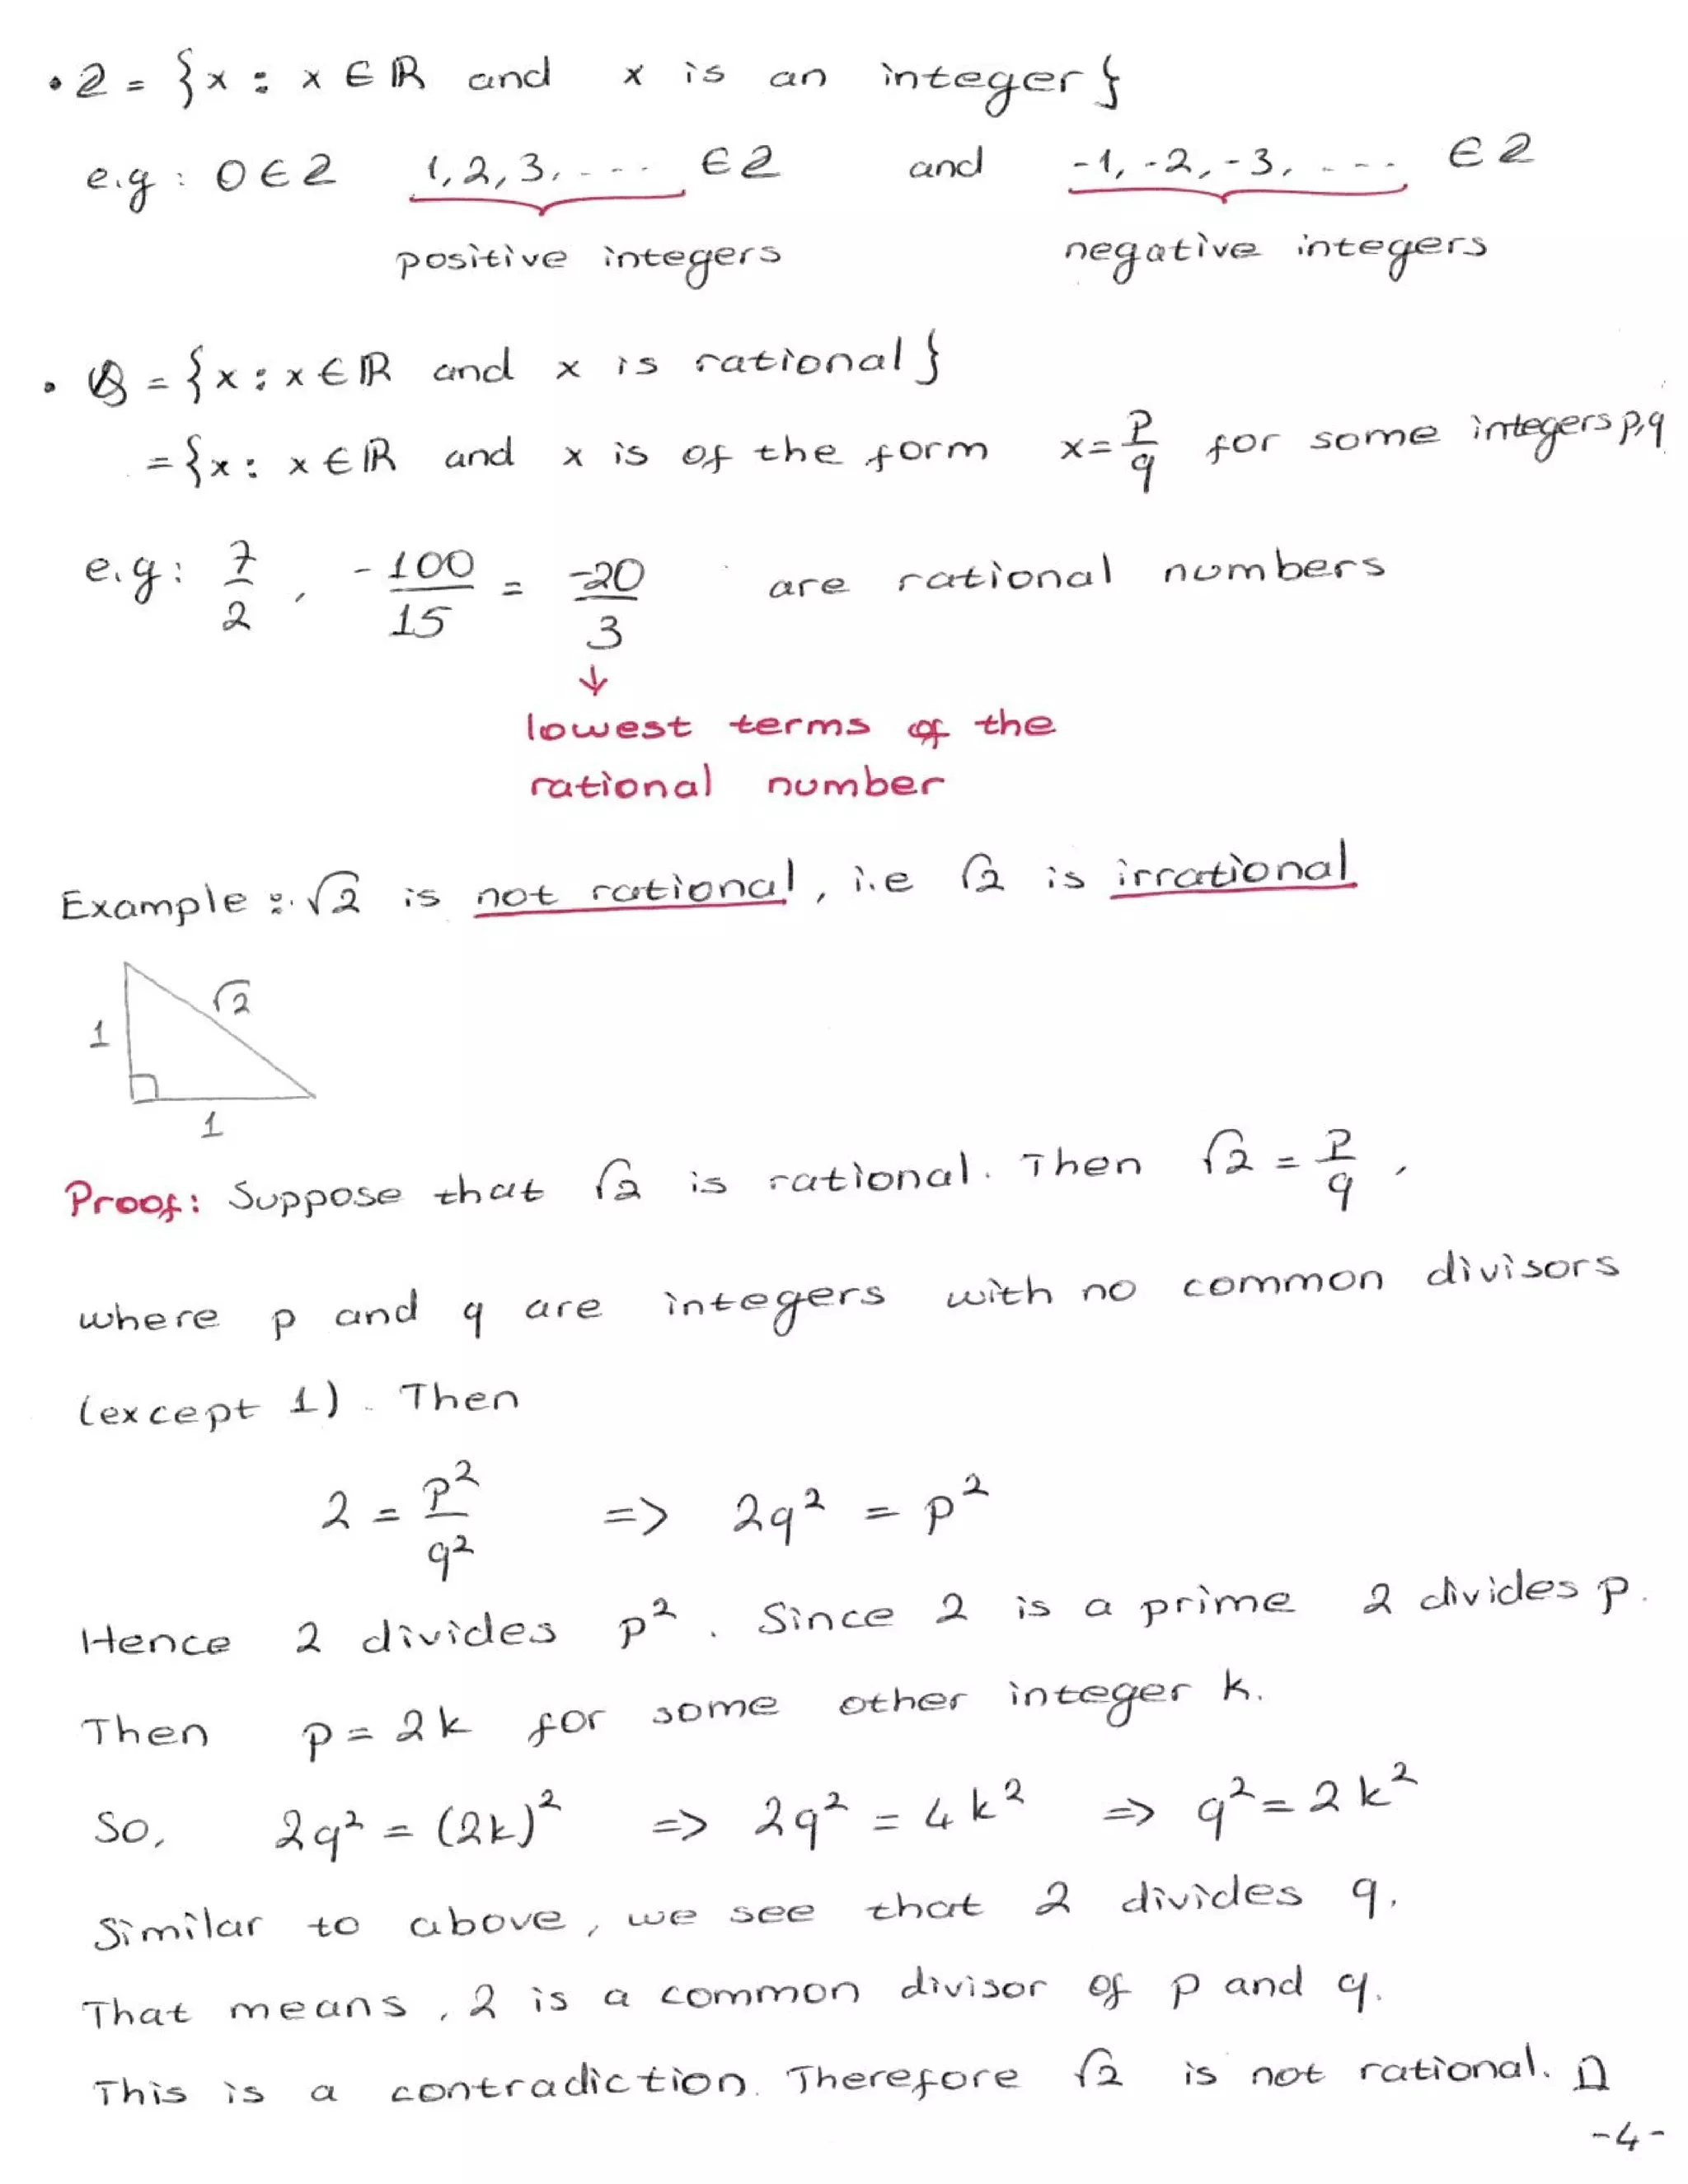 • ℤ = {x : x ∈ ℝ and x is an integer}
e.g : 0 ∈ ℤ 1, 2, 3, .... ∈ ℤ and -1, -2, -3, .... ∈ ℤ
positive integers negative integers
• ℚ = {x : x ∈ ℝ and x is rational}
= {x : x ∈ ℝ and x is of the form x = p/q for some integers p,q
e.g : 7/2 , -100/15 = -20/3 are rational numbers
↓
lowest terms of the
rational number
Example : √2 is not rational, i.e √2 is irrational
√2
1
1
Proof: Suppose that √2 is rational. Then √2 = p/q ,
where p and q are integers with no common divisors
(except 1). Then
2 = p²/q² => 2q² = p²
Hence 2 divides p². Since 2 is a prime 2 divides p.
Then p = 2k for some other integer k.
So, 2q² = (2k)² => 2q² = 4k² => q² = 2k²
Similar to above, we see that 2 divides q.
That means, 2 is a common divisor of p and q.
This is a contradiction. Therefore √2 is not rational. □
-4-